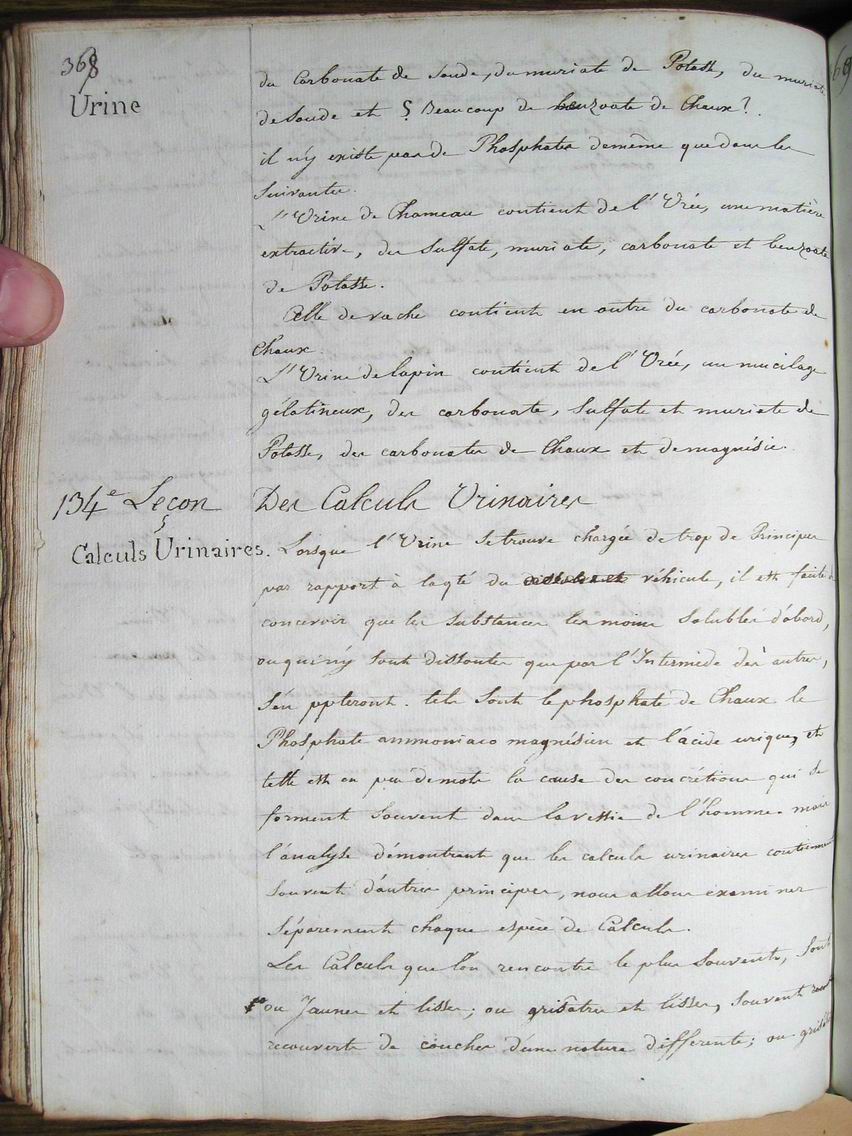 368
Urine
du Carbonate de Soude, du muriate de Potasse, du muriate
de Soude et Beaucoup de benzoate de Chaux?.
il n'y existe pas de Phosphates de même que dans les
Suivantes.
L'Urine de Chameau contient de l'Urée, une matière
extractive, des Sulfate, muriate, carbonate et benzoate
de Potasse.
Celle de vache contient en outre du carbonate de
Chaux.
L'Urine de lapin contient de l'Urée, un mucilage
gélatineux, des carbonate, Sulfate et muriate de
Potasse, des carbonates de Chaux et de magnésie.
134e Leçon Des Calculs Urinaires
Calculs Urinaires. Lorsque l'Urine se trouve chargée de trop de Principes
par rapport à la qté du véhicule, il est facile de
concevoir que les Substances les moins Solubles d'abord,
ou qui n'y sont dissoutes que par l'Intermède des autres,
s'en ppteront. tels sont le phosphate de Chaux le
Phosphate ammoniaco magnésien et l'acide urique, et
telle est en peu de mots la cause des concrétions qui se
forment souvent dans la vessie de l'homme. mais
l'analyse démontrant que les calculs urinaires contiennent
souvent d'autres principes, nous allons examiner
séparement chaque espèce de Calculs.
Les Calculs que l'on rencontre le plus souvent, sont
ou Jaunes et lisses; ou grisâtres et lisses, souvent
recouverts de couches d'une nature differente; ou